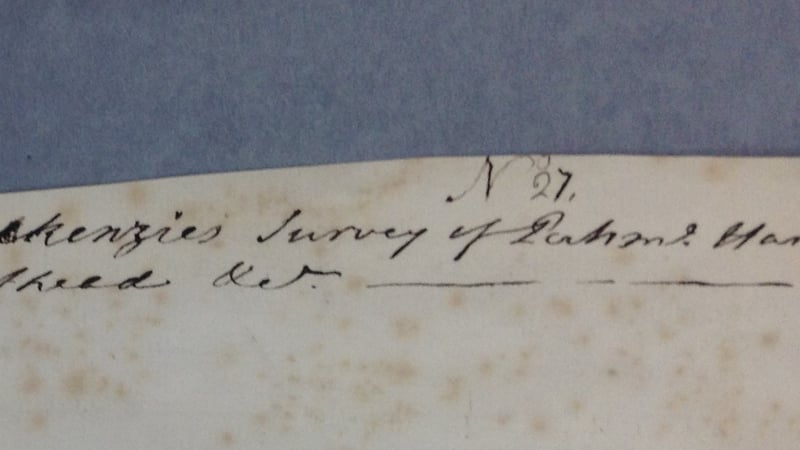 No 27.
ckenzies Survey of Portsmo. Har
thead &c.